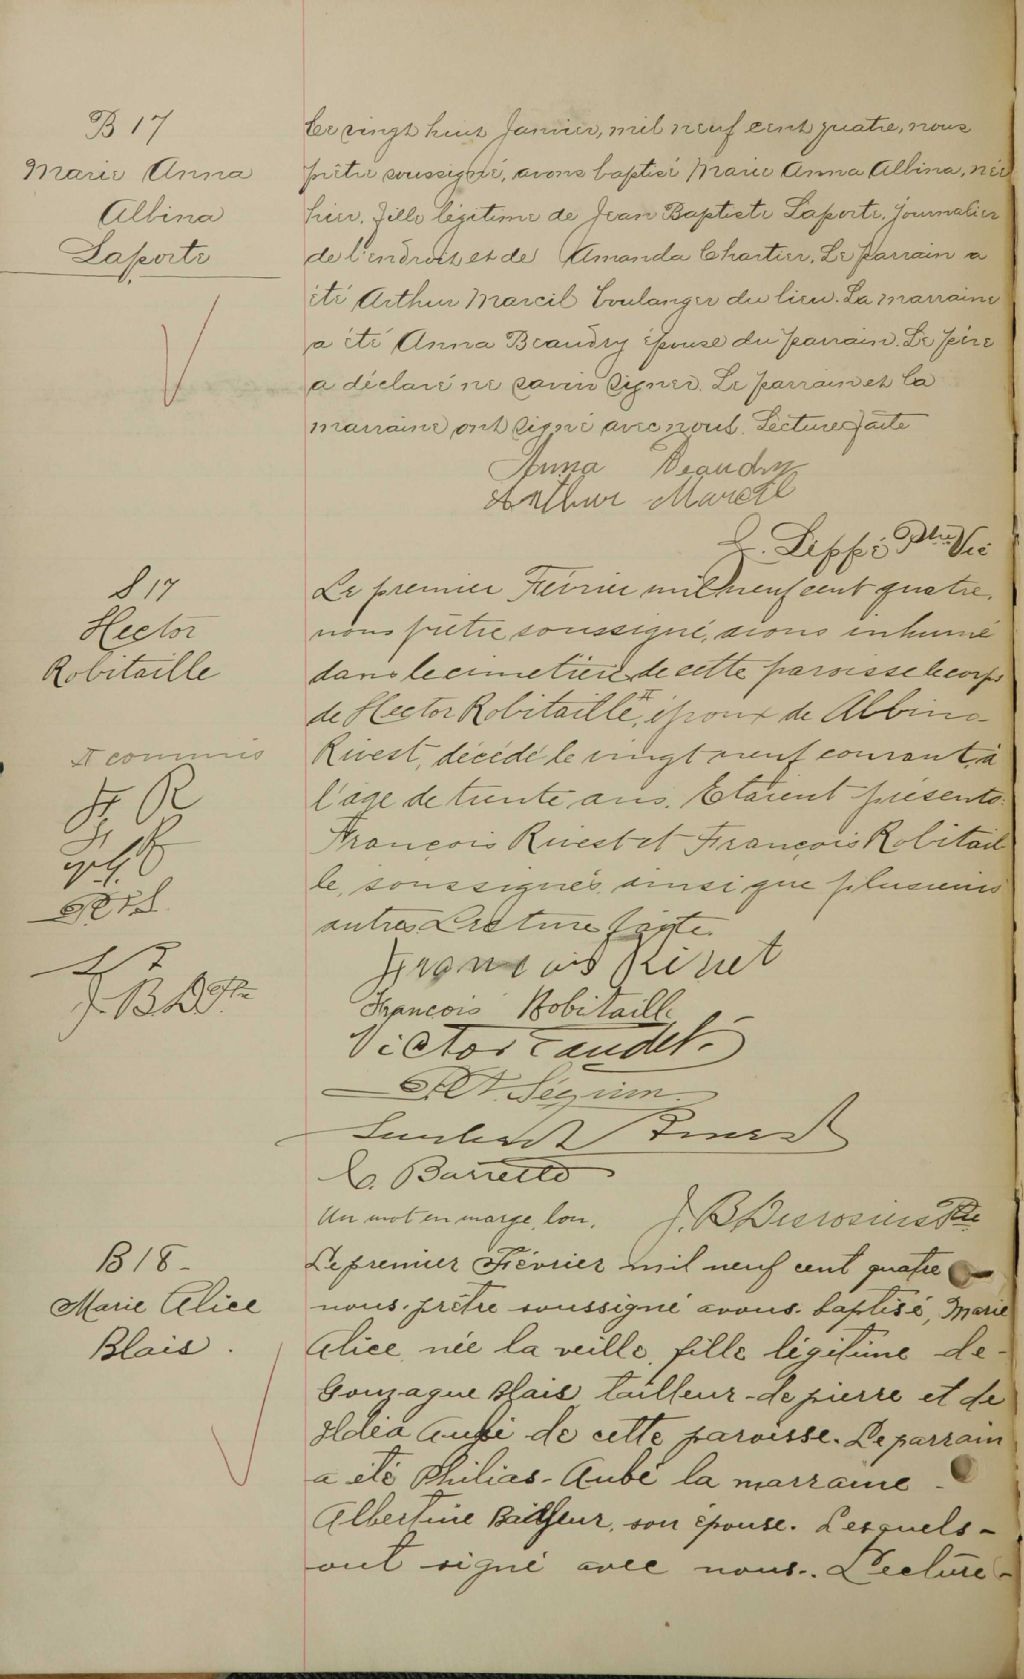 B 17
Marie Anna
Albina
Laporte
Le vingt huit Janvier, mil neuf cent quatre, nous
prêtre soussigné, avons baptisé Marie Anna Albina, née
hier, fille légitime de Jean Baptiste Laporte, journalier
de l'endroit et de Amanda Chartier. Le parrain a
été Arthur Marcil boulanger du lieu. La marraine
a été Anna Beaudry épouse du parrain. Le père
a déclaré ne savoir signer. Le parrain et la
marraine ont signé avec nous. Lecture faite
Anna Beaudry
Arthur Marcil
L. Lippé Ptre Vic
S 17
Hector
Robitaille
Le premier Février mil neuf cent quatre,
nous prêtre soussigné, avons inhumé
dans le cimetière de cette paroisse le corps
de Hector Robitaille, époux de Albina
Rivest, décédé le vingt neuf courant, à
l'âge de trente ans. Etaient présents:
François Rivest et François Robitail
le, soussignés, ainsi que plusieurs
autres. Lecture faite.
commis
F R
J. B. D. Ptre
François Rivest
François Robitaille
Victor Gaudet
Séguin
Rivest
C. Barrette
Un mot en marge, bon.
J. B. Desrosiers Ptre
B 18-
Marie Alice
Blais.
Le premier Février mil neuf cent quatre
nous, prêtre soussigné avons baptisé, Marie
Alice, née la veille, fille légitime de-
Gonzague Blais, tailleur-de pierre et de
Aubé de cette paroisse. Le parrain
a été Philias-Aubé la marraine-
Albertine, son épouse. Lesquels-
ont signé avec nous.. Lecture-